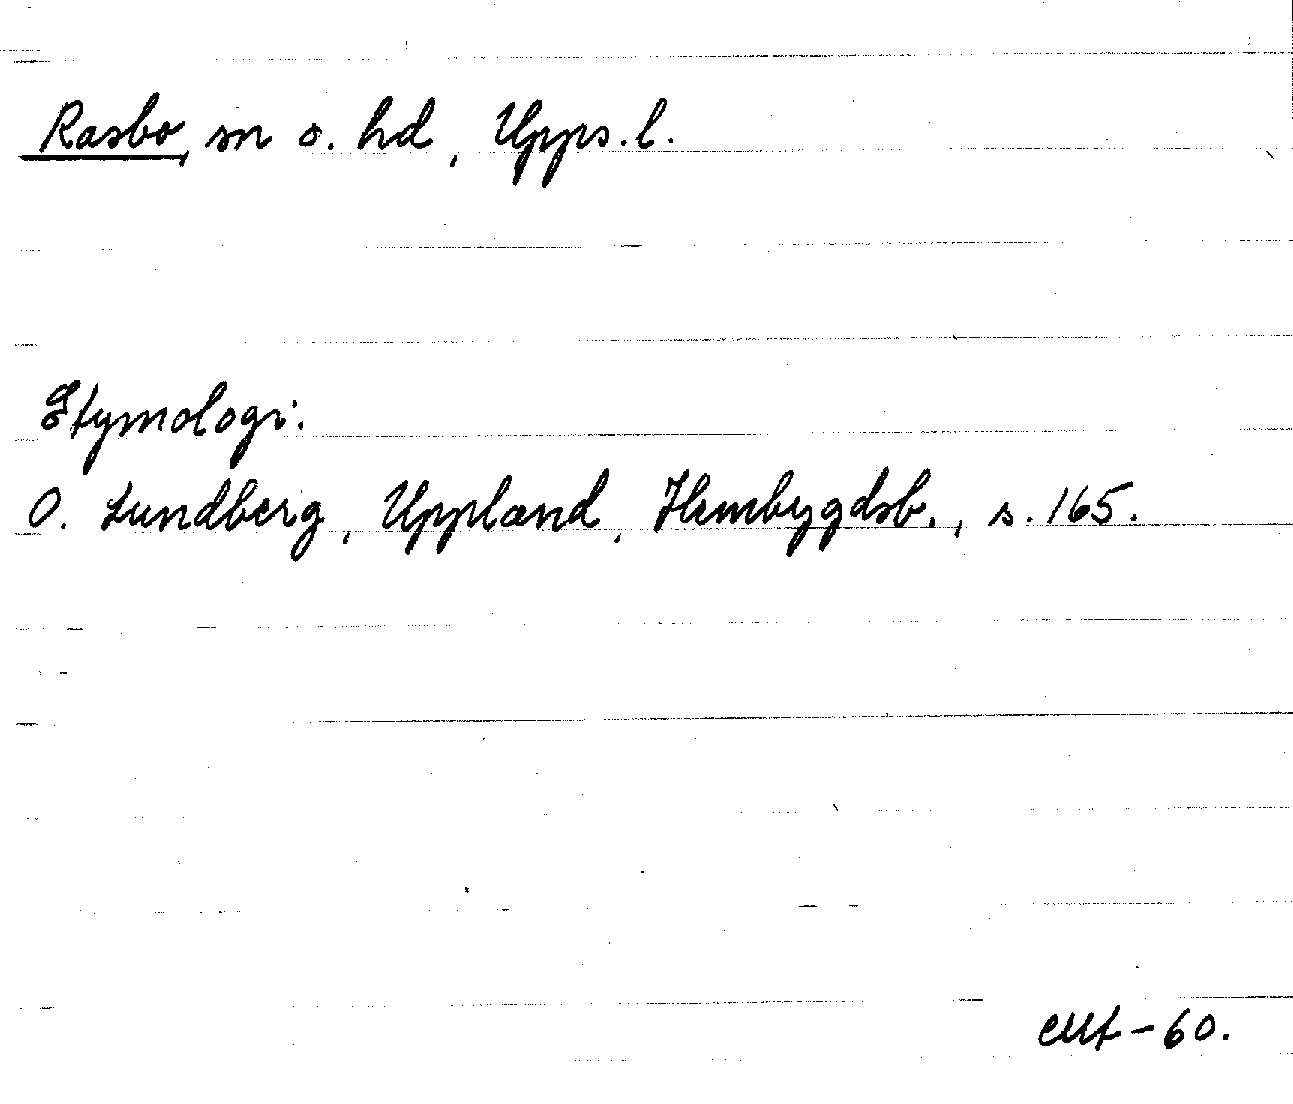 Rasbo, sn o. hd, Upps. l.
Etymologi.
O. Lundberg, Uppland, Hembygdsb., s. 165.
-60.